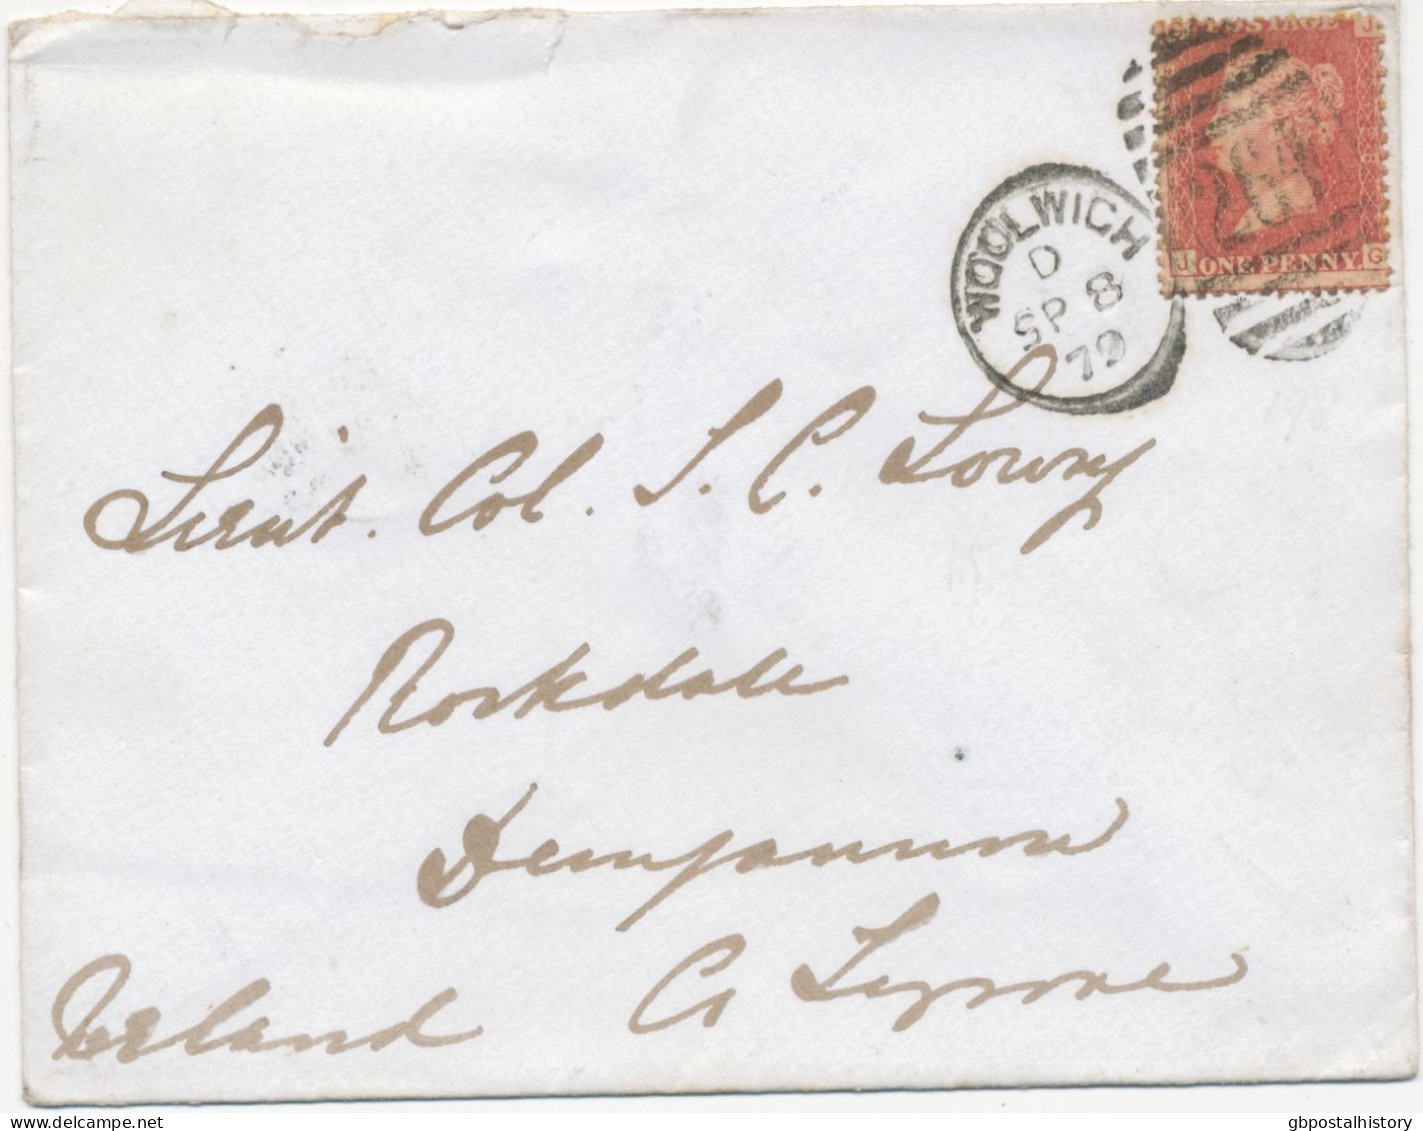 POSTAGE
J
J G
ONE PENNY
WOOLWICH
D
SP 8
79
Lieut. Col. S. C. Lowry
Rockdale
Dungannon
Co Tyrone
Ireland
gbpostalhistory